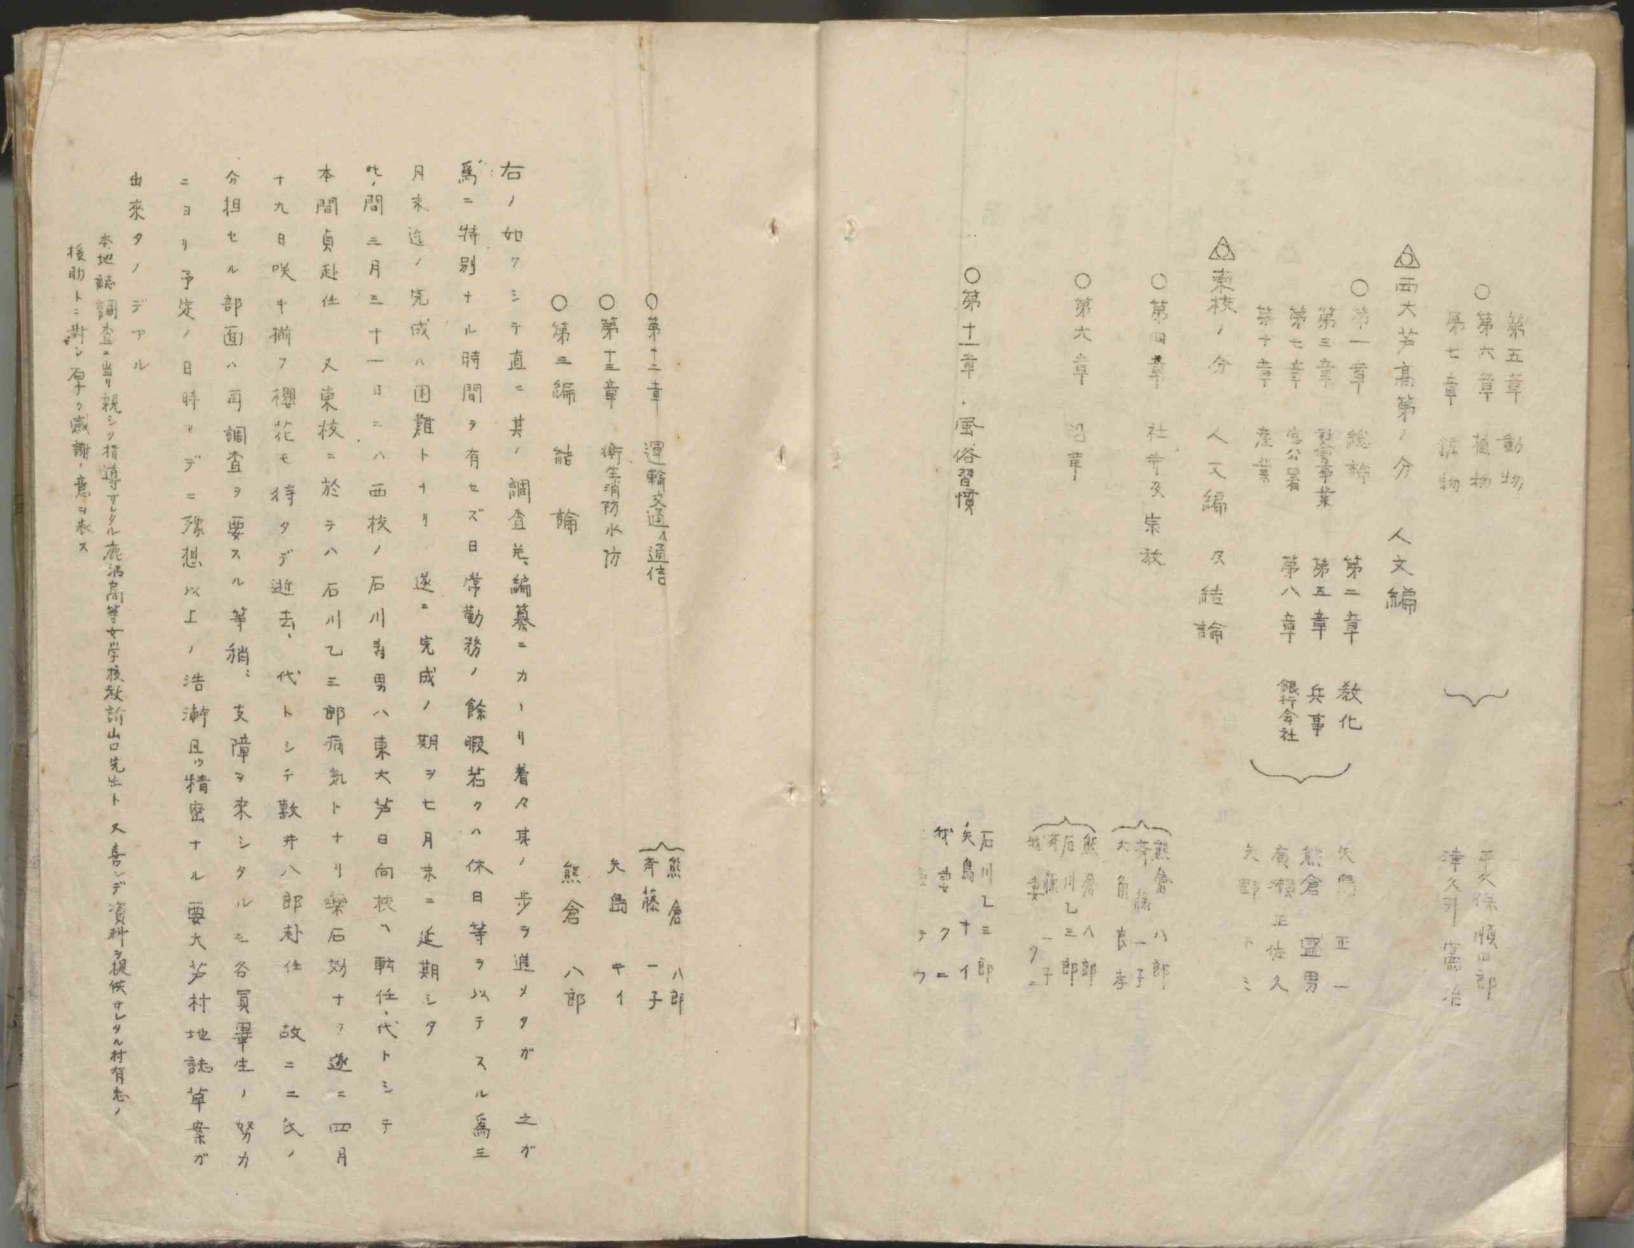 第五章　動物
○第六章　植物
第七章　鉱物
平久保順四郎
津久井富治
西大芦高等ノ分　人文編
○第一章　総論　第二章　教化
第三章　社会事業　第五章　兵事
第七章　官公署　第八章　銀行会社
第十章　産業
矢島正一
熊倉盛男
廣瀬正佐久
矢野トミ
東校ノ分　人文編及結論
○第四章　社寺及宗教
熊倉八郎
斉藤一子
大角良孝
○第六章　沿革
熊倉八郎
石川乙三郎
斉藤一子
我妻クニ
○第十一章・風俗習慣
石川乙三郎
矢島ナイ
我妻クニ
○第十二章　運輸交通及通信
熊倉八郎
斉藤一子
○第十三章　衛生消防水防
矢島ナイ
○第三編　結論
熊倉八郎
右ノ如クシテ直ニ其ノ調査並編纂ニカヽリ着々其ノ歩ヲ進メタガ　之ガ
為ニ特別ナル時間ヲ有セズ日常勤務ノ餘暇若クハ休日等ヲ以テスル為三
月末迄ノ完成ハ困難トナリ　遂ニ完成ノ期ヲ七月末ニ延期シタ
此ノ間三月三十一日ニハ西校ノ石川壽男ハ東大芦日向校ヘ転任、代トシテ
本間貞赴任　又東校ニ於テハ石川乙三郎病気トナリ薬石効ナク遂ニ四月
十九日咲キ揃フ櫻花モ待タデ逝去、代トシテ敷井八郎赴任　故ニ二氏ノ
分担セル部面ハ再調査ヲ要スル等稍々支障ヲ来シタルモ各員畢生ノ努力
ニヨリ予定ノ日時マデニ豫想以上ノ浩瀚且ツ精密ナル西大芦村地誌草案ガ
出來タノデアル
本地誌調査ニ当リ親シク指導サレタル鹿沼高等女学校教諭山口先生ト又喜ンデ資料ヲ提供サレタル村有志ノ
援助トニ対シ厚ク感謝ノ意ヲ表ス